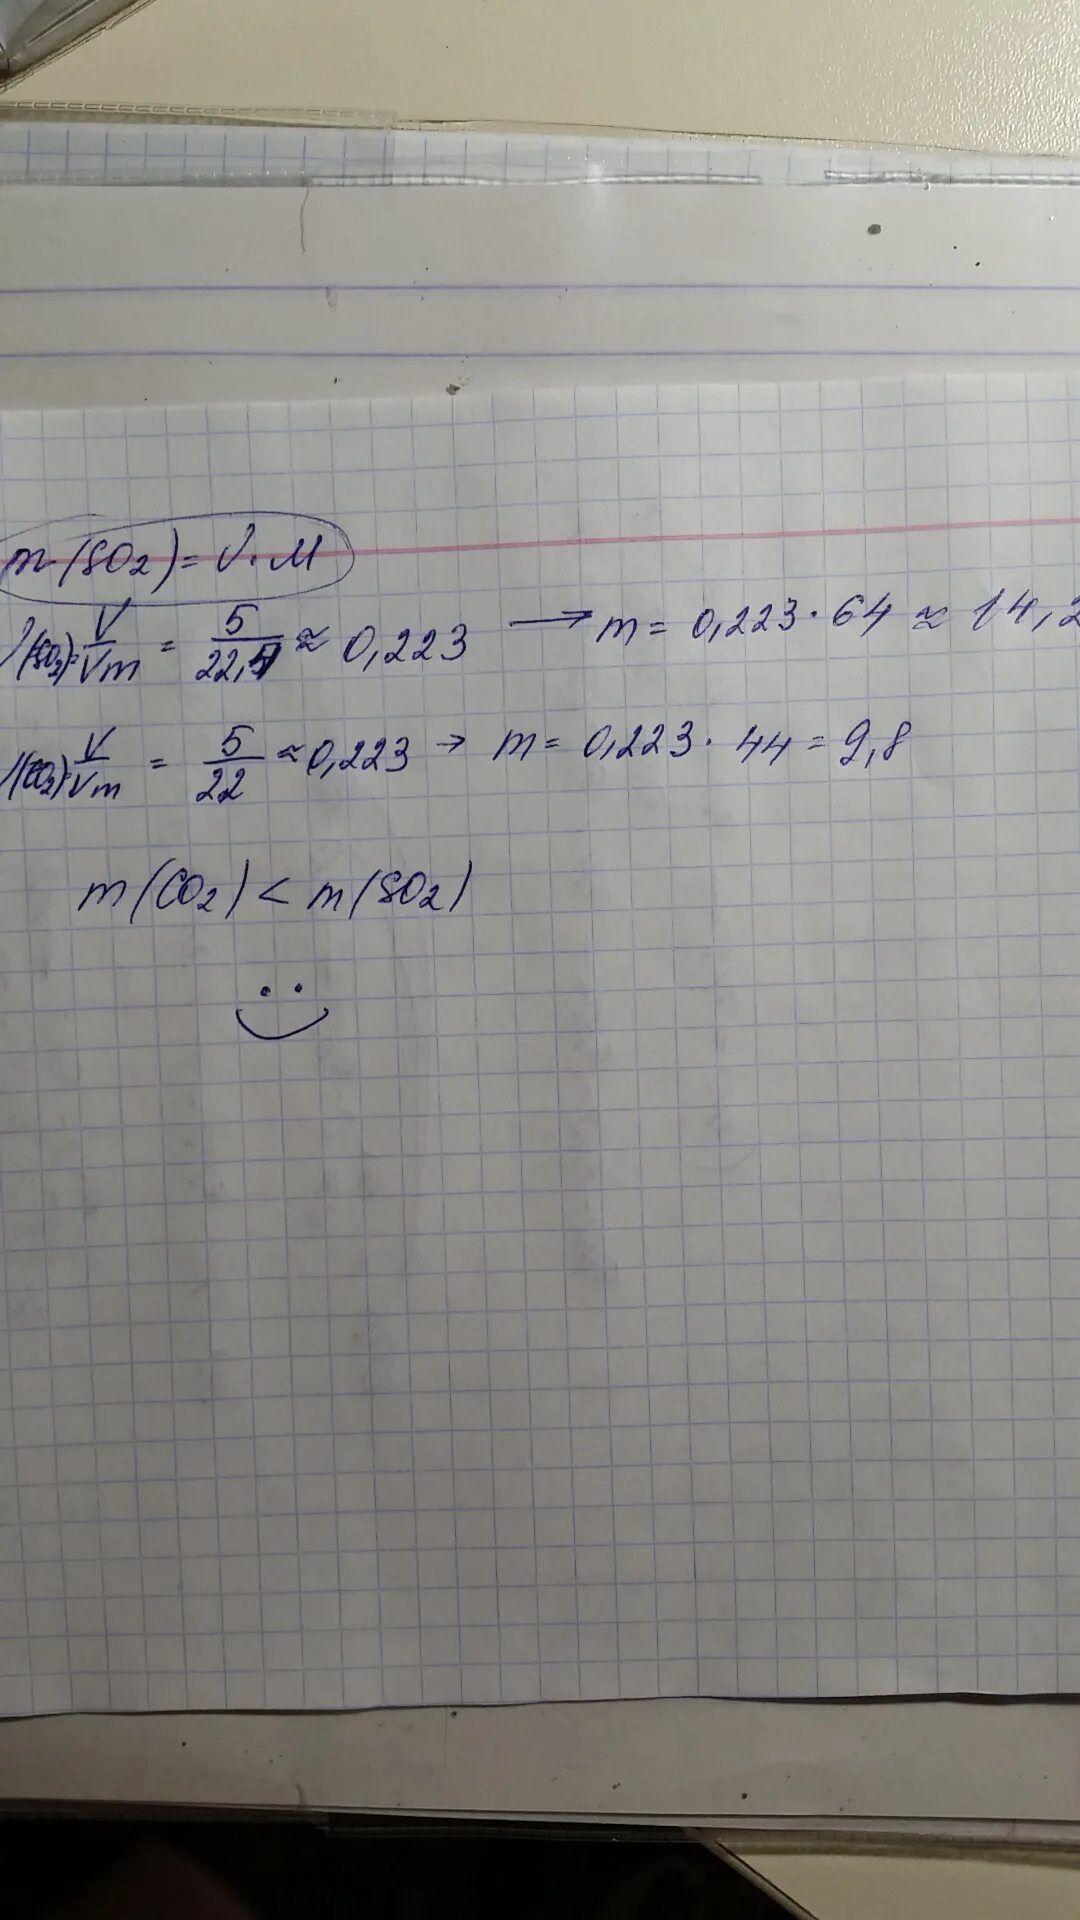 m(SO₂) = ν·M
ν(SO₂) = V/Vm = 5/22,4 ≈ 0,223 → m = 0,223·64 ≈ 14,2
ν(CO₂) = V/Vm = 5/22 ≈ 0,223 → m = 0,223·44 = 9,8
m(CO₂) < m(SO₂)